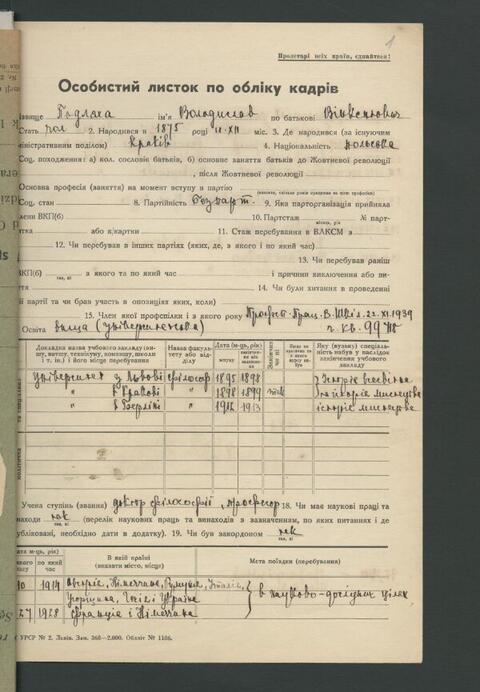 1
Пролетарі всіх країн, єднайтеся!
Особистий листок по обліку кадрів
звище Подлаха ім'я Володислав по батькові Вікентович
Стать чол 2. Народився в 1875 році 11.XII міс. 3. Де народився (за існуючим
міністративним поділом) Краків 4. Національність польська
Соц. походження: а) кол. сословіє батьків, б) основне заняття батьків до Жовтневої революції
, після Жовтневої революції
Основна професія (заняття) на момент вступу в партію
(вказати, скільки років працював на цією професією)
Соц. стан 8. Партійність безпарт. 9. Яка парторганізація прийняла
члени ВКП(б) 10. Партстаж № парт-
місяць, рік
итка або к/картки 11. Стаж перебування в ВЛКСМ з
12. Чи перебував в інших партіях (яких, де, з якого і по який час)
13. Чи перебував раніш
ВКП(б) з якого та по який час і причини виключення або ви-
так, ні
иття 14. Чи були хитання в проведенні
ії партії та чи брав участь в опозиціях яких, коли)
15. Член якої профспілки і з якого року Профсп. Прац. В. Шкіл. 22. XI. 1939
Освіта вища (університетська) ч. кв. 99
Докладна назва учбового закладу (ви-
шу, втузу, технікуму, комвишу, школи
і т. п.) і його місце перебування
Назва факуль-
тету або від-
ділу
Дата (м-ць, рік)
вступу
Яку (вузьку) спеціаль-
ність набув в наслідок
закінчення учбового
закладу
університет у Львові філософ 1895 1898 Історія всесвітня
" в Кракові " 1898 1899 так та історія мистецтва
" в Берліні " 1912 1913 історія мистецтва
політична
Учена ступінь (звання) доктор філософії, професор 18. Чи має наукові праці та
находи так (перелік наукових праць та винаходів з зазначенням, по яких питаннях і де
так, ні
убліковані, необхідно дати в додатку). 19. Чи був закордоном так
так, ні
ата (м-ць, рік)
В якій країні
(вказати місто, місце)
Мета поїздки (перебування)
10 1914 Австрія, Німеччина, Румунія, Італія,
Угорщина, Чехія і Україна в науково-дослідних цілях
27 1928 Франція і Німеччина
УРСР № 2. Львів. Зам. 368—2.000. Обліліт № 1106.